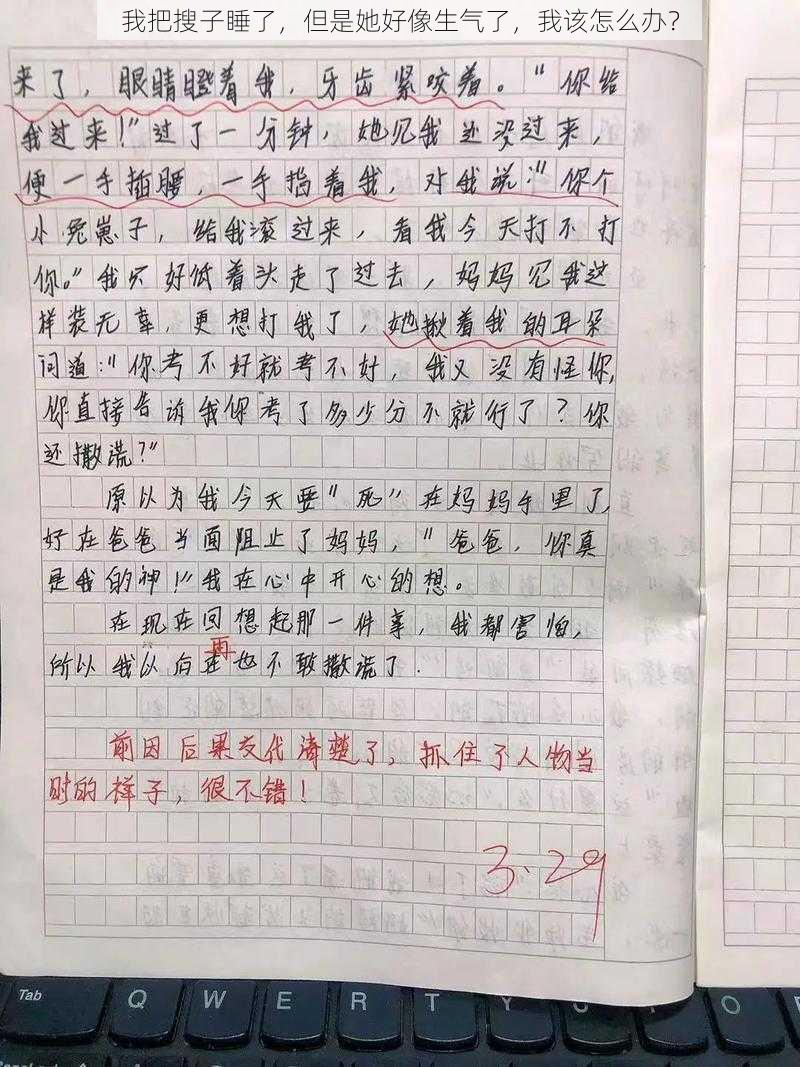 我把搜子睡了，但是她好像生气了，我该怎么办？
来了，眼睛瞪着我，牙齿紧咬着。“你给
我过来！”过了一分钟，她见我还没过来，
便一手插腰，一手指着我，对我说：“你个
小兔崽子，给我滚过来，看我今天打不打
你。”我只好低着头走了过去，妈妈见我这
样装无辜，更想打我了，她揪着我的耳朵
问道：“你考不好就考不好，我又没有怪你，
你直接告诉我你考了多少分不就行了？你
还撒谎？”
原以为我今天要“死”在妈妈手里了，
好在爸爸当面阻止了妈妈，“爸爸，你真
是我的神！”我在心中开心的想。
在现在回想起那一件事，我都害怕，
再
所以我以后在也不敢撒谎了.
前因后果交代清楚了，抓住了人物当
时的样子，很不错！
3.29
Tab Q W E R T Y U O